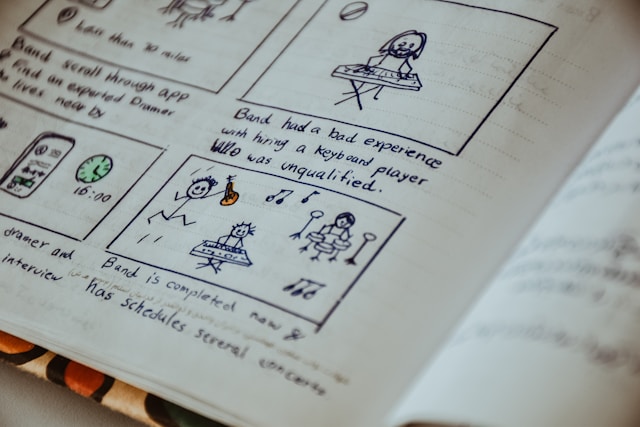 Less than 30 miles
Band scroll through app
Find an experted Dramer
lives near by
Band had a bad experience
with hiring a keyboard player
was unqualified.
16:00
dramer and
interview
Band is completed now &
has schedules several concerts